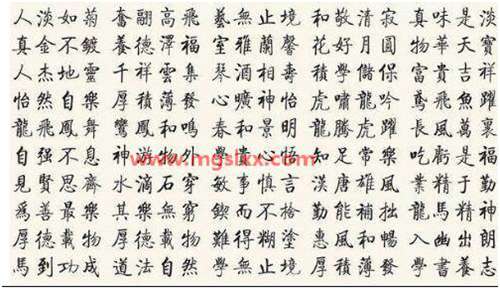 人淡如菊 奮翮高飛 藝無止境 和敬清寂 真味是淡
真金不鍍 養德澤福 室雅蘭馨 花好月圓 物華天寶
人杰地靈 千祥雲集 琴酒相壽 學儲 富貴吉祥
怡然自樂 厚積薄發 心曠神怡 虎嘯龍吟 鳶飛魚躍
龍飛鳳舞 鸞鳳和鳴 春和景明 龍騰虎躍 長風萬裏
自强不息 神遊物外 學貴心悟 知足常樂 吃虧是福
www.mgslxx.com
見賢思齊 水滴石穿 敏事慎言 漢唐雄風 業精于勤
為善最樂 其樂無窮 鍥而不捨 勤能補拙 龍馬精神
厚德載物 厚德載物 難得糊塗 惠風和暢 入幽出朗
馬到功成 道法自然 學無止境 厚積薄發 學書養志